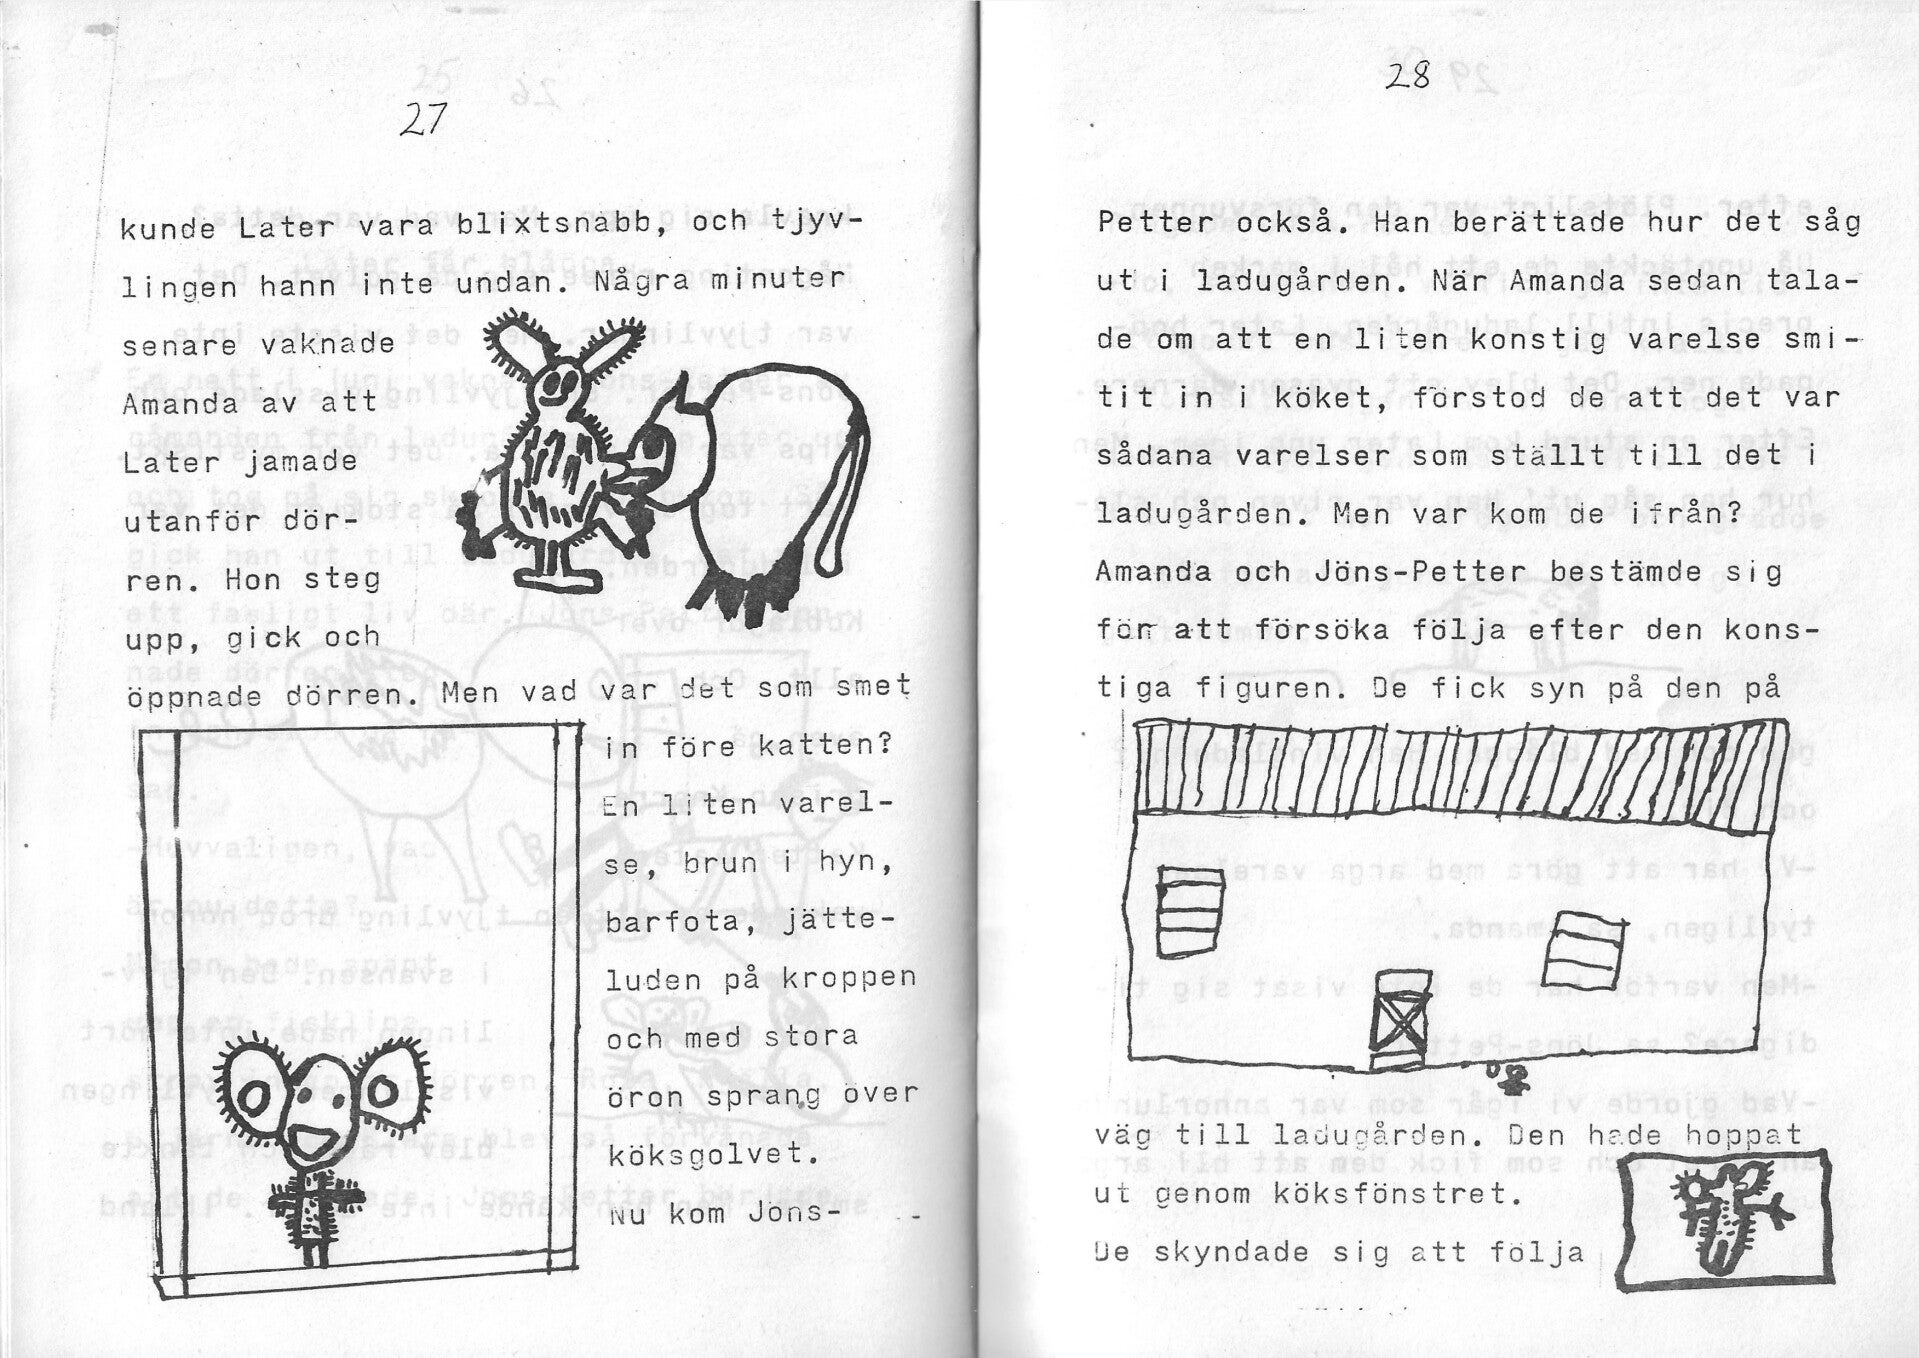 27
kunde Later vara blixtsnabb, och tjyv-
lingen hann inte undan. Några minuter
senare vaknade
Amanda av att
Later jamade
utanför dör-
ren. Hon steg
upp, gick och
öppnade dörren. Men vad var det som smet
in före katten?
En liten varel-
se, brun i hyn,
barfota, jätte-
luden på kroppen
och med stora
öron sprang över
köksgolvet.
Nu kom Jöns-
28
Petter också. Han berättade hur det såg
ut i ladugården. När Amanda sedan tala-
de om att en liten konstig varelse smi-
tit in i köket, förstod de att det var
sådana varelser som ställt till det i
ladugården. Men var kom de ifrån?
Amanda och Jöns-Petter bestämde sig
för att försöka följa efter den kons-
tiga figuren. De fick syn på den på
väg till ladugården. Den hade hoppat
ut genom köksfönstret.
De skyndade sig att följa